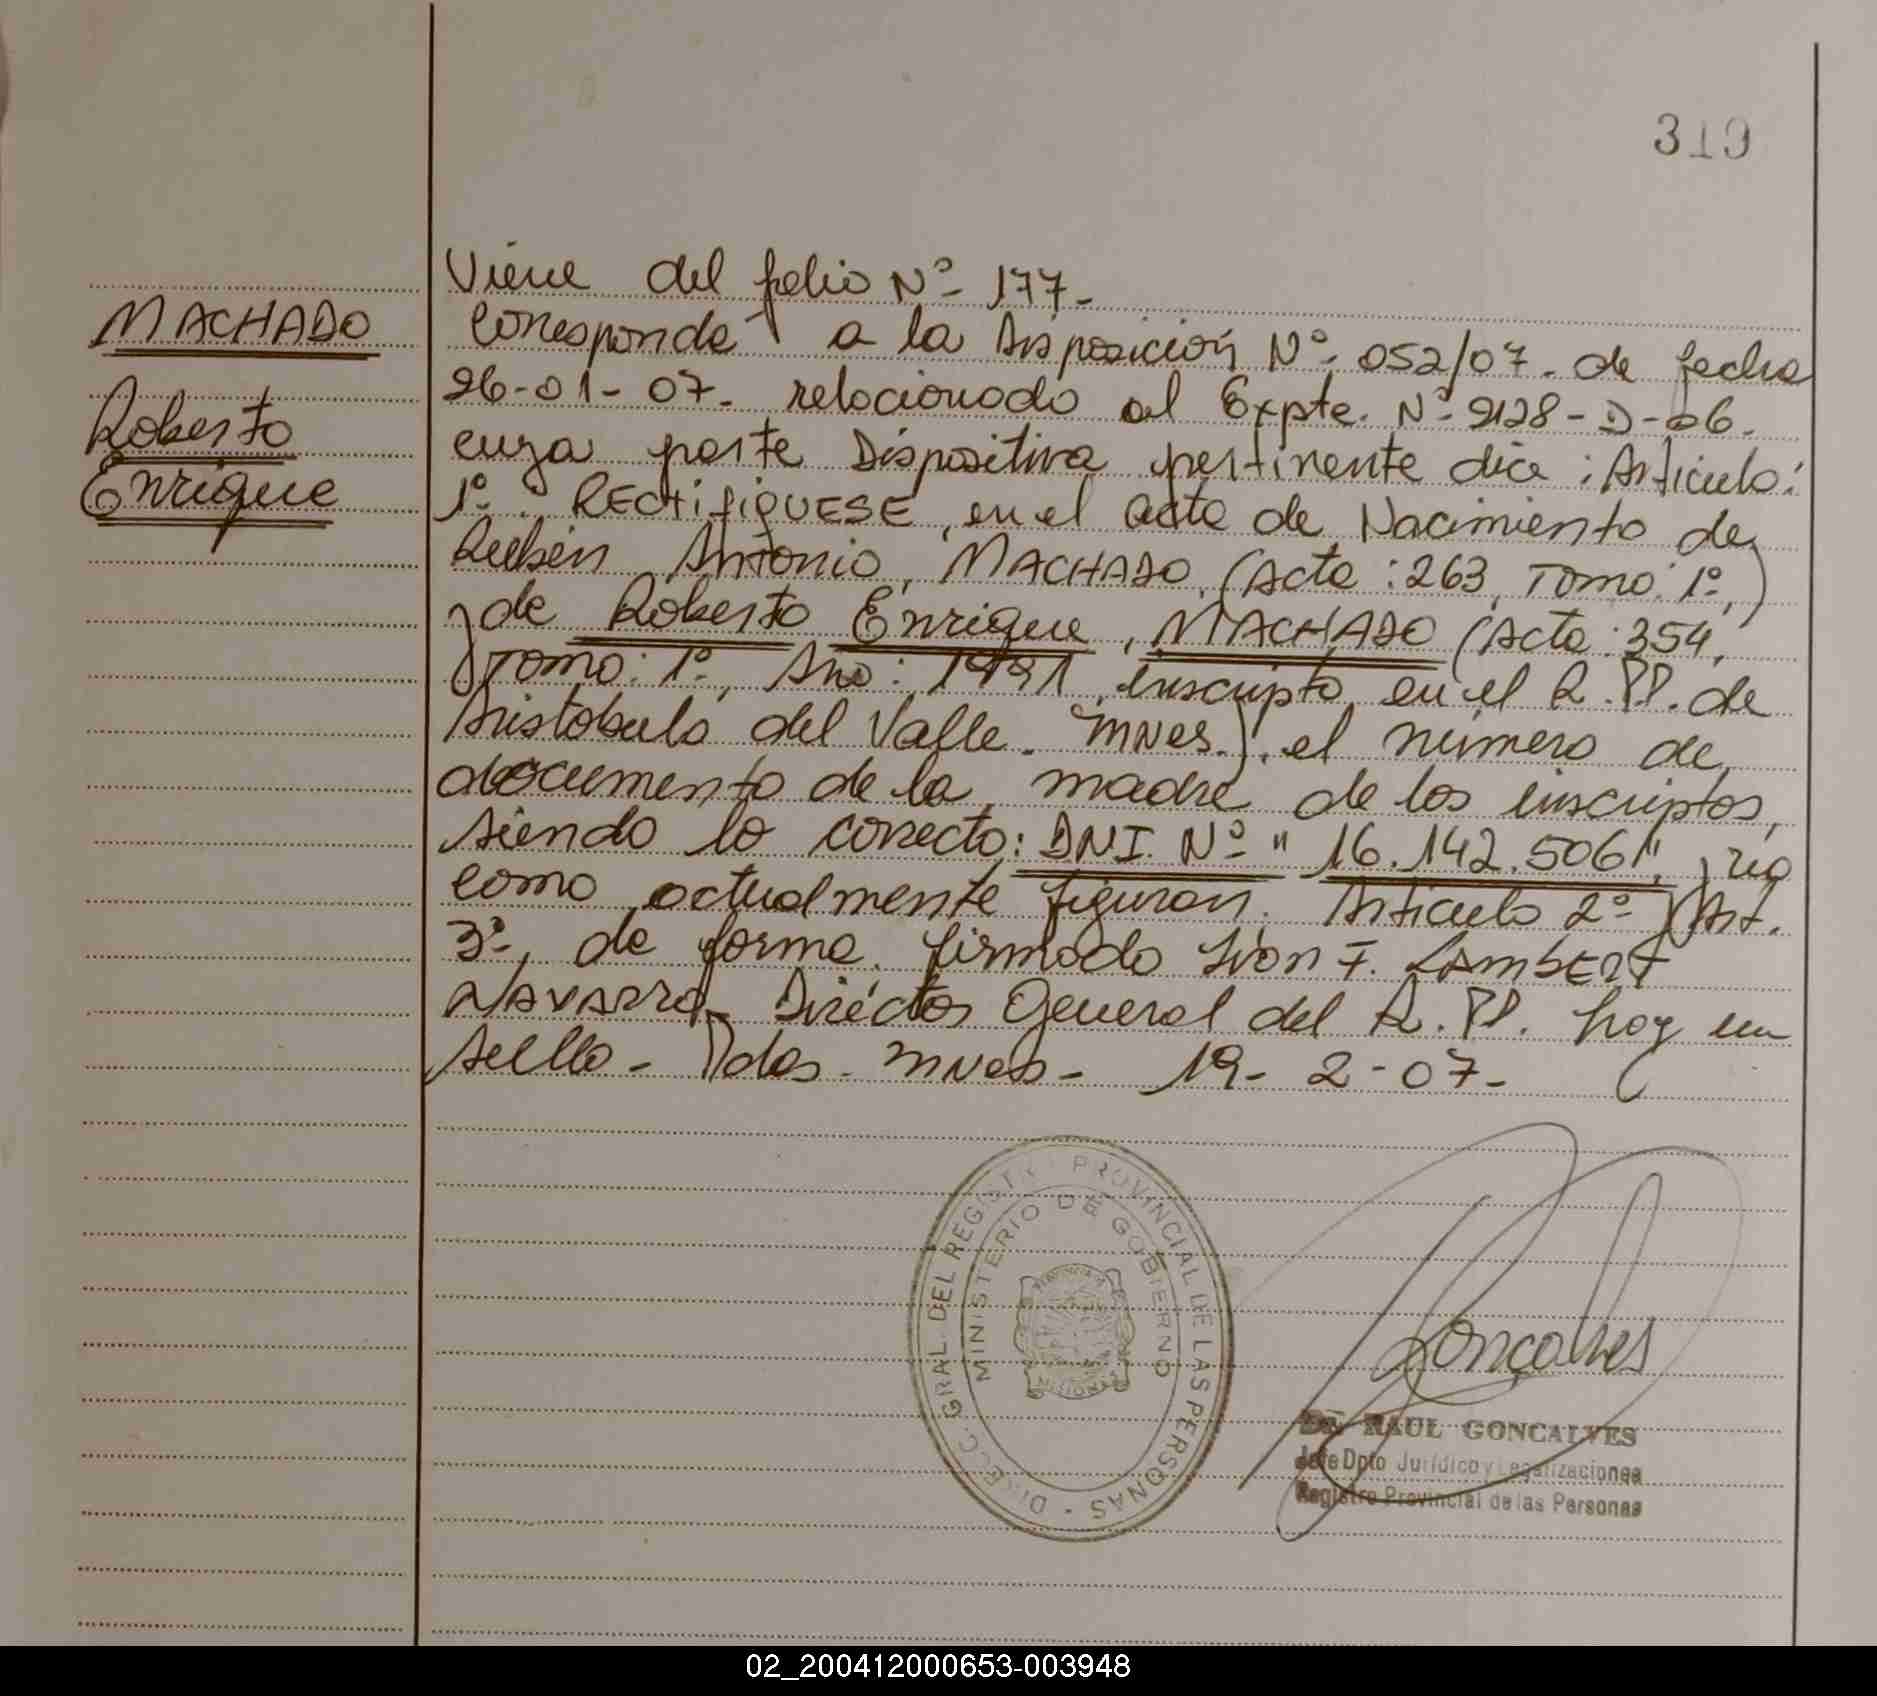 319
MACHADO
Roberto
Enrique
Viene del folio Nº 177-
Corresponde a la Disposición Nº 052/07. de fecha
26-01-07. relacionado al Expte. Nº 2128-D-06.
cuya parte Dispositiva pertinente dice: Artículo:
1º. RECTIFIQUESE, en el acta de Nacimiento de
Rubén Antonio, MACHADO, (Acta: 263, Tomo: 1º,)
y de Roberto Enrique, MACHADO (Acta: 354,
Tomo: 1º, Año: 1991, inscripto en el R.PP. de
Aristobulo del Valle. Mnes.). el número de
documento de la madre de los inscriptos,
siendo lo correcto: DNI. Nº "16.142.506", y no
como actualmente figuran. Articulo 2º y Art.
3º, de forma. firmado Ivon F. LAMBERT
NAVARRO. Director General del R.PP. hay un
sello - Pdas. Mnes - 19-2-07-
DIRECC. GRAL. DEL REGISTRO PROVINCIAL DE LAS PERSONAS -
MINISTERIO DE GOBIERNO
MISIONES
Goncalves
Dr. RAUL GONCALVES
Jefe Dpto Jurídico y Legalizaciones
Registro Provincial de las Personas
02_200412000653-003948